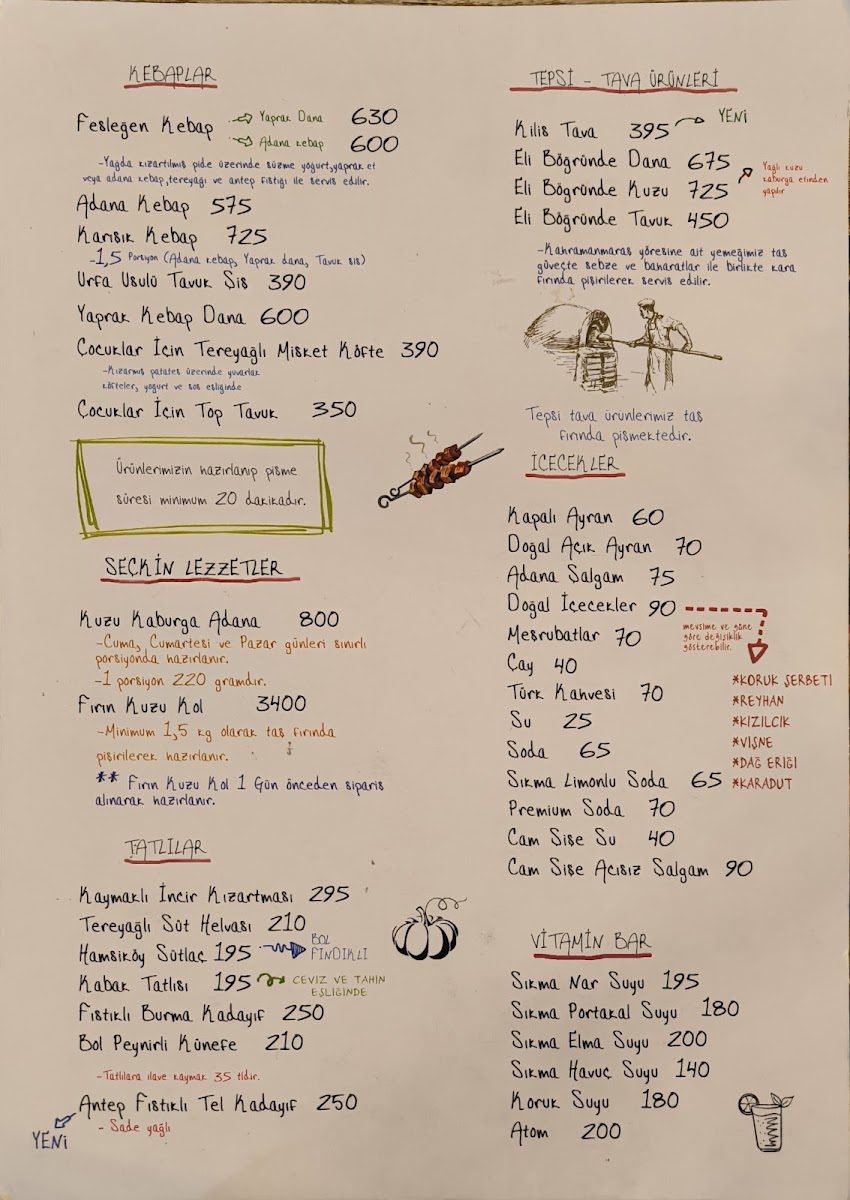 KEBAPLAR
Fesleğen Kebap
Yaprak Dana 630
Adana kebap 600
-Yağda kızartılmış pide üzerinde süzme yoğurt,yaprak et
veya adana kebap,tereyağı ve antep fıstığı ile servis edilir.
Adana Kebap 575
Karışık Kebap 725
-1,5 Porsiyon (Adana kebap, Yaprak dana, Tavuk şiş)
Urfa Usulü Tavuk Şiş 390
Yaprak Kebap Dana 600
Çocuklar İçin Tereyağlı Misket Köfte 390
-Kızarmış patates üzerinde yuvarlak
köfteler, yogurt ve sos eşliğinde
Çocuklar İçin Top Tavuk 350
Ürünlerimizin hazırlanıp pişme
süresi minimum 20 dakikadır.
SEÇKİN LEZZETLER
Kuzu Kaburga Adana 800
-Cuma, Cumartesi ve Pazar günleri sınırlı
porsiyonda hazırlanır.
-1 porsiyon 220 gramdır.
Fırın Kuzu Kol 3400
-Minimum 1,5 kg olarak taş fırında
pişirilerek hazırlanır.
** Fırın Kuzu Kol 1 Gün önceden sipariş
alınarak hazırlanır.
TATLILAR
Kaymaklı İncir Kızartması 295
Tereyağlı Süt Helvası 210
Hamsiköy Sütlaç 195
BOL
FINDIKLI
Kabak Tatlısı 195
CEVİZ VE TAHİN
EŞLİĞİNDE
Fıstıklı Burma Kadayıf 250
Bol Peynirli Künefe 210
-Tatlılara ilave kaymak 35 tldir.
Antep Fıstıklı Tel Kadayıf 250
- Sade yağlı
YENİ
TEPSİ - TAVA ÜRÜNLERİ
Kilis Tava 395
YENİ
Eli Böğründe Dana 675
Eli Böğründe Kuzu 725
Yağlı kuzu
kaburga etinden
yapılır
Eli Böğründe Tavuk 450
-Kahramanmaraş yöresine ait yemeğimiz taş
güveçte sebze ve baharatlar ile birlikte kara
fırında pişirilerek servis edilir.
Tepsi tava ürünlerimiz taş
fırında pişmektedir.
İÇECEKLER
Kapalı Ayran 60
Doğal Açık Ayran 70
Adana Şalgam 75
Doğal İçecekler 90
mevsime ve güne
göre değişiklik
gösterebilir.
*KORUK ŞERBETİ
*REYHAN
*KIZILCIK
*VİŞNE
*DAĞ ERİĞİ
*KARADUT
Meşrubatlar 70
Çay 40
Türk Kahvesi 70
Su 25
Soda 65
Sıkma Limonlu Soda 65
Premium Soda 70
Cam Şişe Su 40
Cam Şişe Acısız Şalgam 90
VİTAMİN BAR
Sıkma Nar Suyu 195
Sıkma Portakal Suyu 180
Sıkma Elma Suyu 200
Sıkma Havuç Suyu 140
Koruk Suyu 180
Atom 200